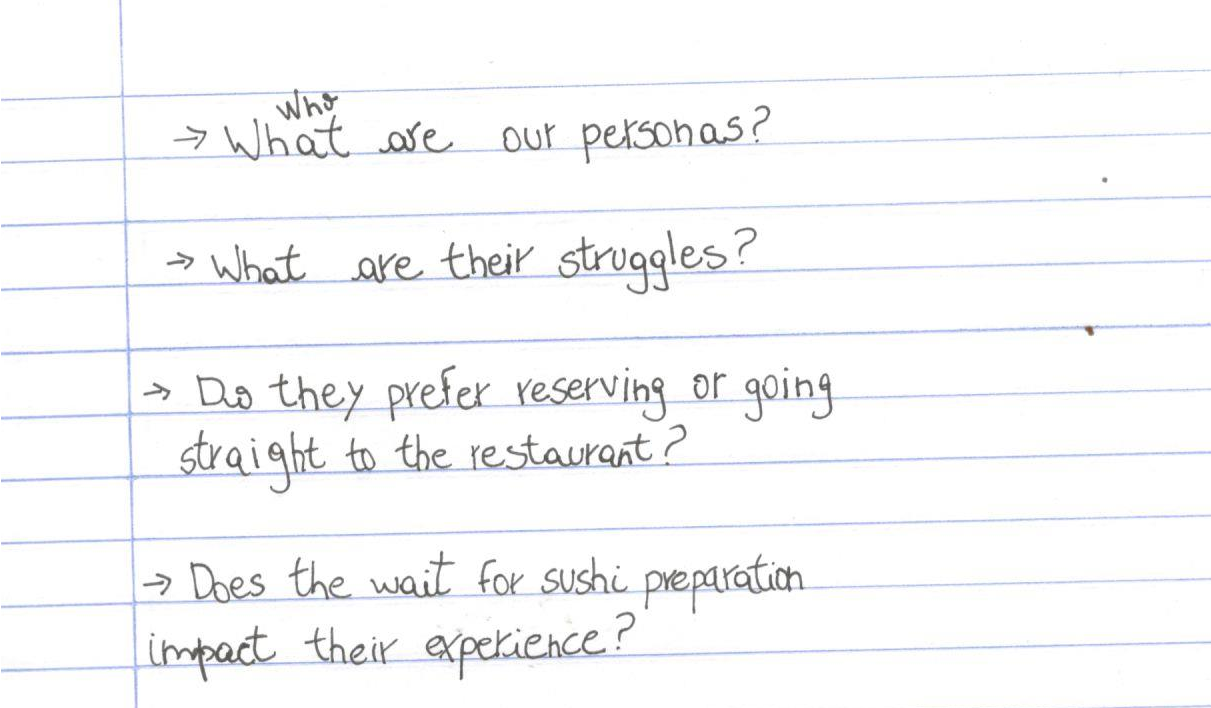 Who
→ What are our personas?
→ What are their struggles?
→ Do they prefer reserving or going
straight to the restaurant?
→ Does the wait for sushi preparation
impact their experience?